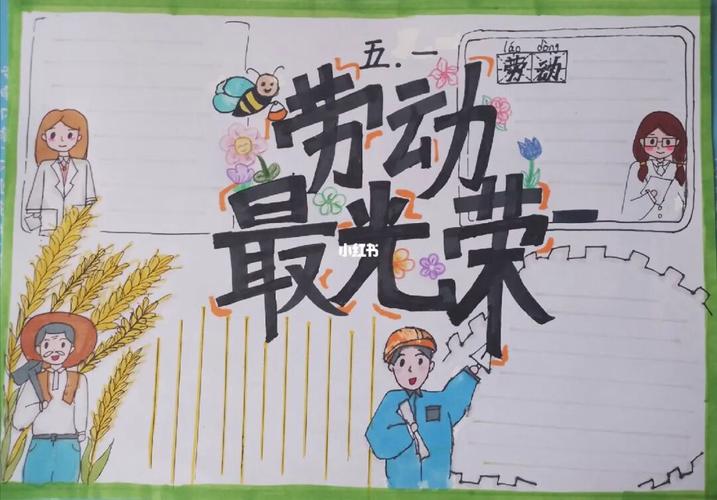 五.一
láo dòng
劳动
劳动
最光荣
小红书